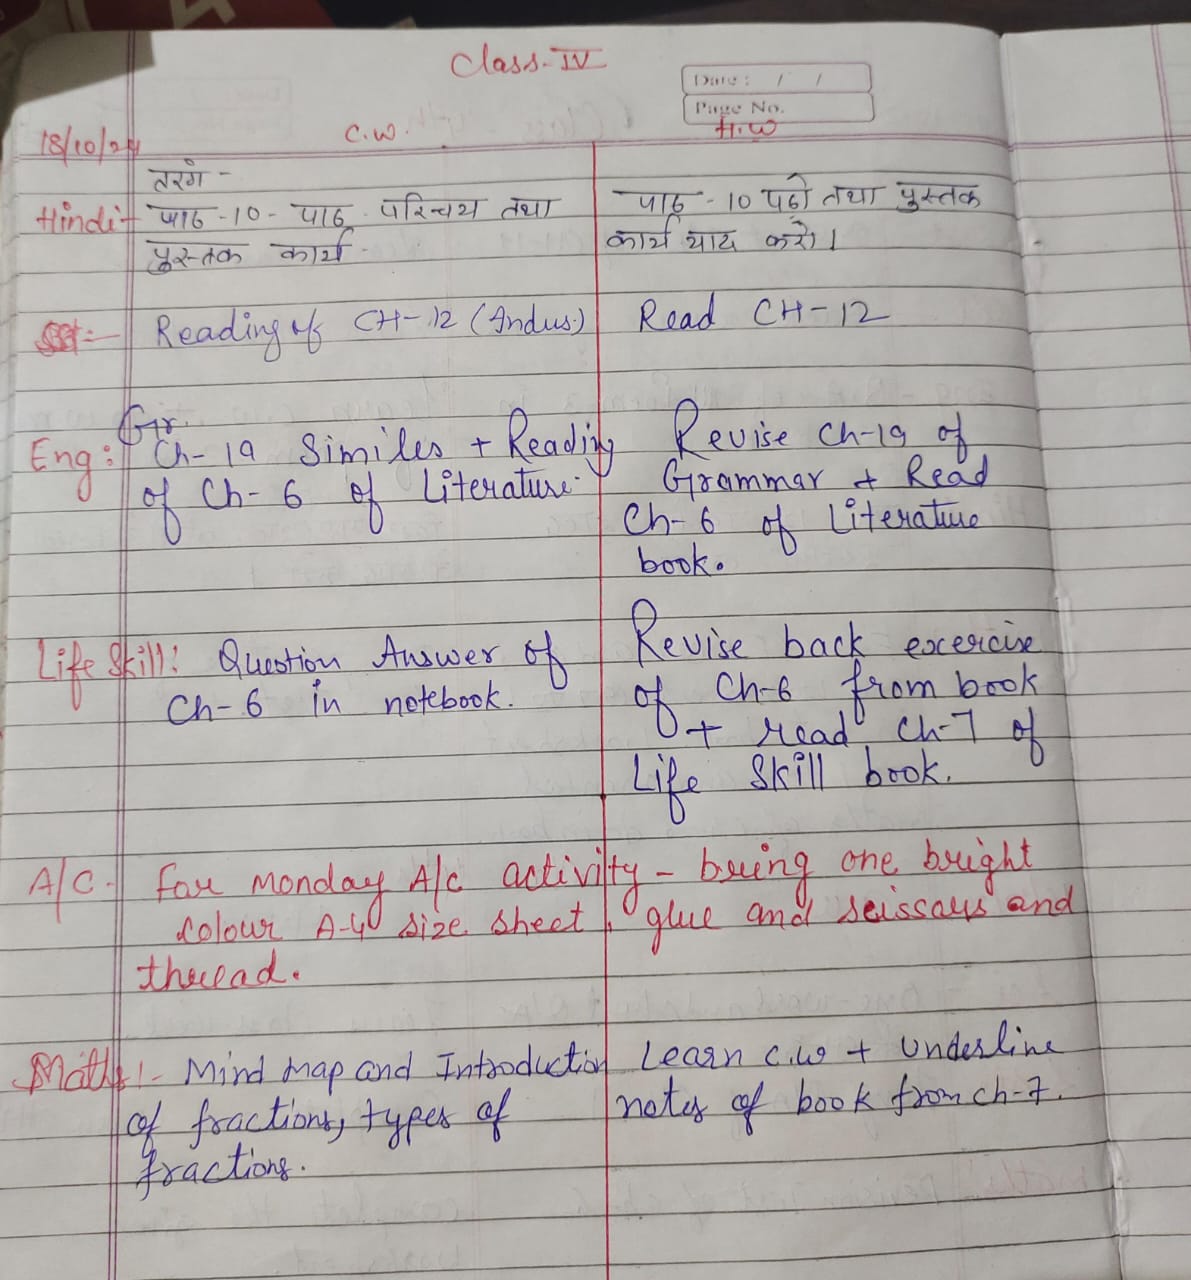 Class-IV
Date: / /
Page No.
18/10/24
C.W.
H.W
तरंग -
Hindi:- पाठ-10- पाठ परिचय तथा
पुस्तक कार्य-
पाठ-10 पढो तथा पुस्तक
कार्य याद करो।
SSt:- Reading of CH-12 (Indus)
Read CH-12
Gr.
Eng: Ch-19 Similes + Reading
of Ch-6 of Literature.
Revise Ch-19 of
Grammar + Read
Ch-6 of Literature
book.
Life Skill: Question Answer of
Ch-6 in notebook.
Revise back excercise
of Ch-6 from book
+ read Ch-7 of
Life Skill book.
A/C- For Monday A/c activity - bring one bright
colour A-4 size sheet, glue and scissors and
thread.
Maths:- Mind Map and Introduction
of fractions, types of
fractions.
Learn c.w + Underline
notes of book from ch-7.